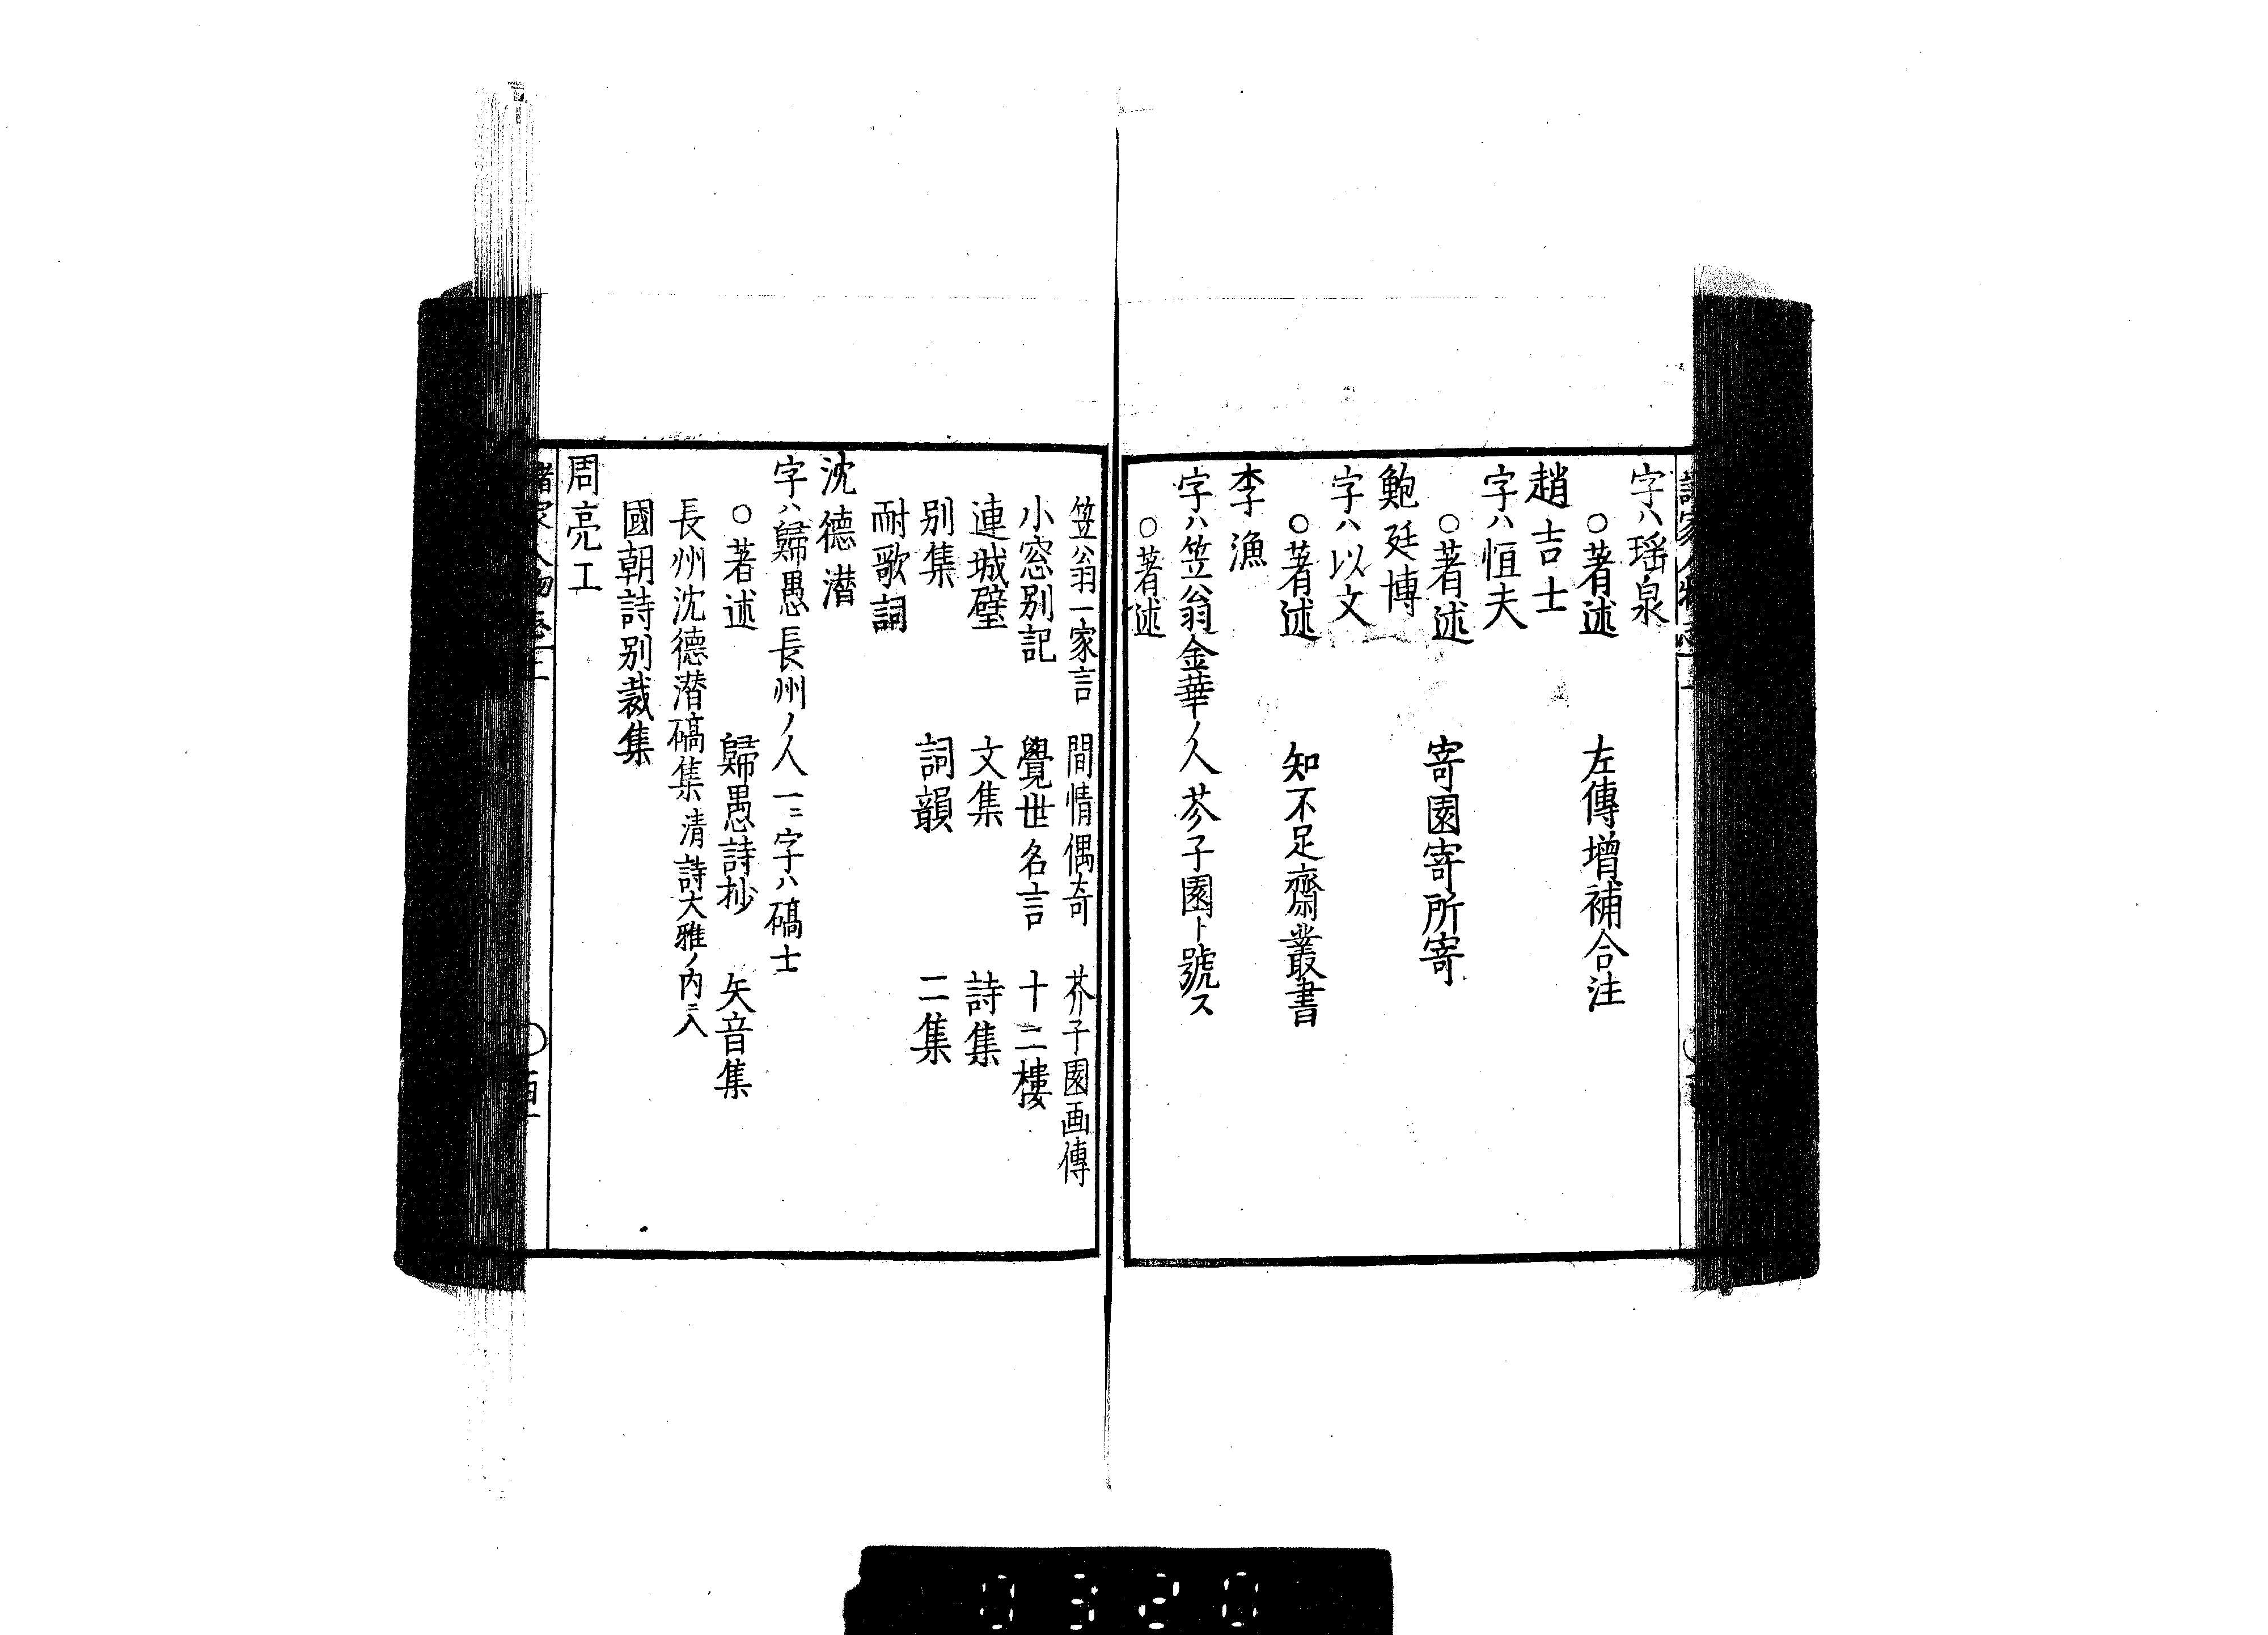 字ハ瑶泉
○著述　左傳增補合注
趙吉士
字ハ恒夫
○著述　寄園寄所寄
鮑廷博
字ハ以文
○著述　知不足齋叢書
李漁
字ハ笠翁金華ノ人芥子園ト號ス
○著述
笠翁一家言　間情偶奇　芥子園画傳
小窓別記　覺世名言　十二樓
連城璧　文集　詩集
別集　詞韻　二集
耐歌詞
沈德潜
字ハ歸愚長州ノ人一ニ字ハ碻士
○著述　歸愚詩抄　矢音集
長州沈德潜碻集清詩大雅ノ内ニ入
國朝詩別裁集
周亮工
0320